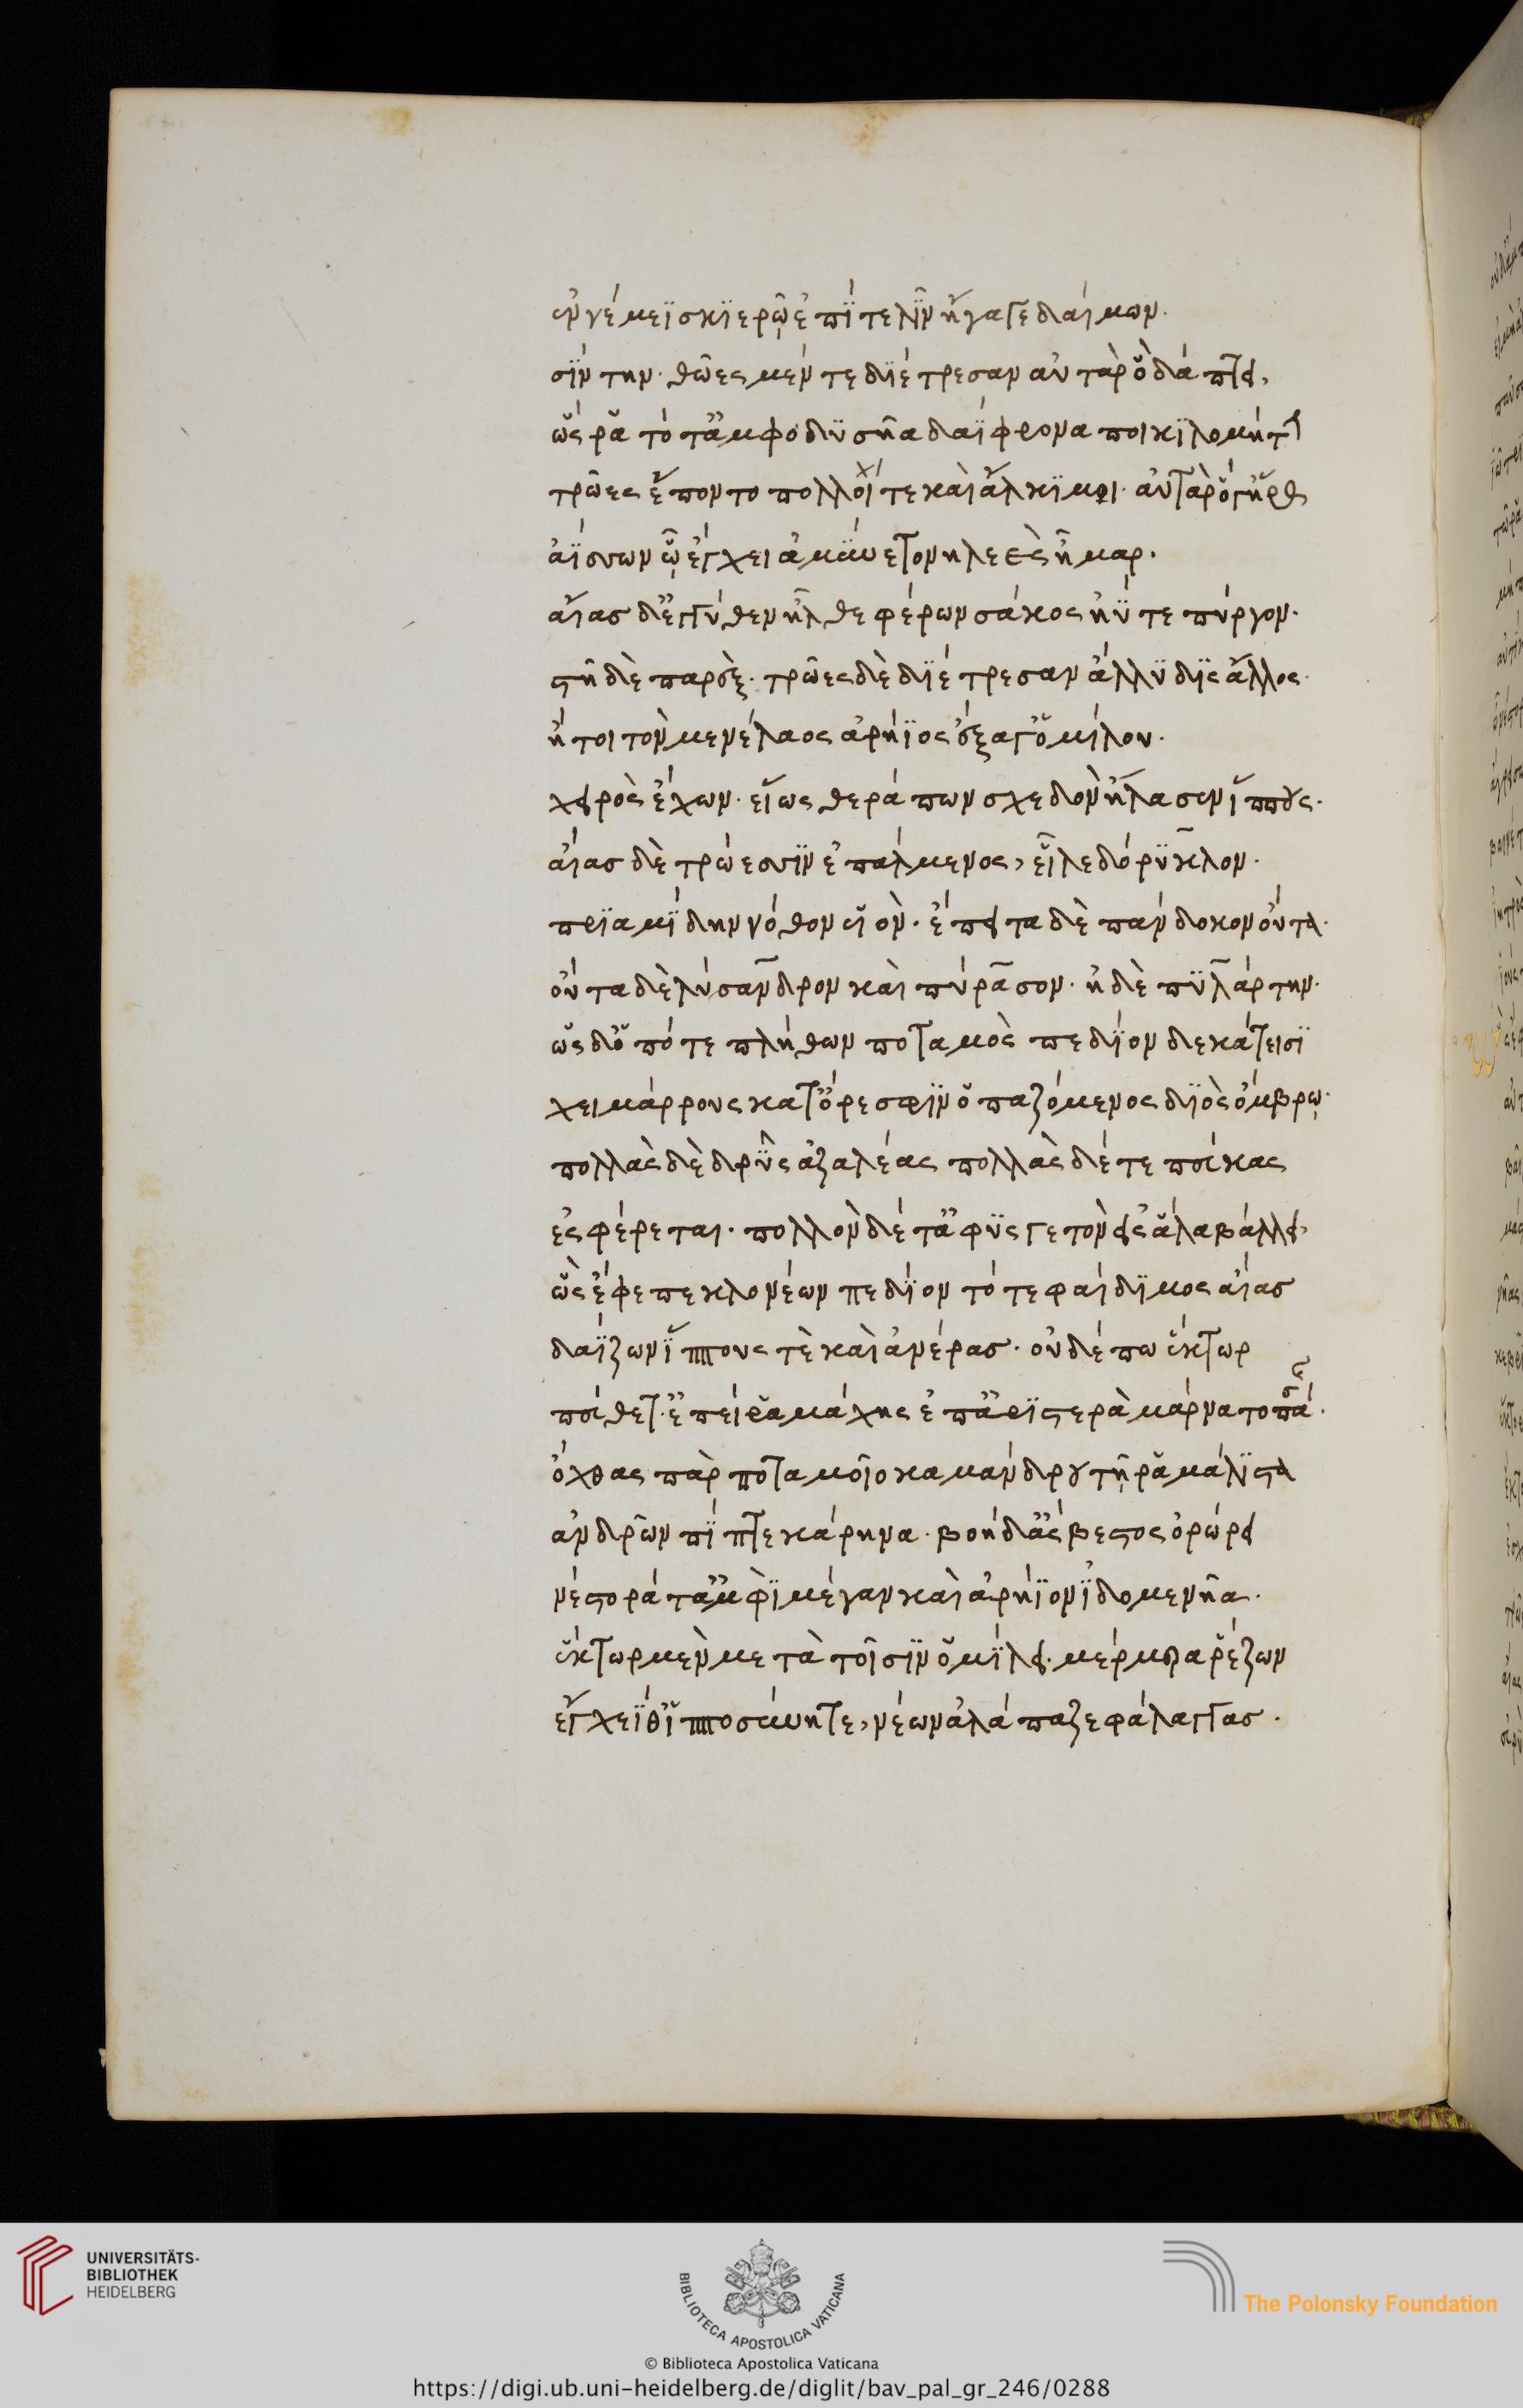 ἐν νέμεϊ σκιερῷ ἐπί τε λῖν ἤγαγε δαίμων.
σίντην. θῶες μέν τε διέτρεσαν αὐτὰρ ὃ δάπτει,
ὥς ῥα τότ' ἀμφ' ὀδυσῆα δαΐφρονα ποικιλομήτην
τρῶες ἕποντο πολλοί τε καὶ ἄλκιμοι. αὐτὰρ ὅγ' ἥρως
ἀΐσσων ᾧ ἔγχει ἀμύνετο νηλεὲς ἦμαρ.
αἴας δ' ἐγγύθεν ἦλθε φέρων σάκος ἠΰτε πύργον.
στῆ δὲ παρὲξ. τρῶες δὲ διέτρεσαν ἄλλυδις ἄλλος.
ἤτοι τὸν μενέλαος ἀρήϊος ἔξαγ' ὁμίλου.
χειρὸς ἔχων. εἵως θεράπων σχεδὸν ἤλασεν ἵππους.
αἴας δὲ τρώεσσιν ἐπάλμενος, εἷλε δόρυκλον.
πριαμίδην νόθον υἱόν. ἔπειτα δὲ πάνδοκον οὖτα.
οὖτα δὲ λύσανδρον καὶ πύρασον. ἠδὲ πυλάρτην.
ὡς δ' ὁπότε πλήθων ποταμὸς πεδίον δε κάτεισι
χειμάρρους κατ' ὄρεσφιν ὀπαζόμενος διὸς ὄμβρῳ.
πολλὰς δὲ δρῦς ἀζαλέας πολλὰς δέ τε πεύκας
ἐσφέρεται. πολλὸν δέ τ' ἀφυσγετὸν εἰς ἅλα βάλλει,
ὣς ἔφεπε κλονέων πεδίον τότε φαίδιμος αἴας
δαΐζων ἵππους τὲ καὶ ἀνέρας. οὐδέ πω ἕκτωρ
πεύθετ'. ἐπεί ῥα μάχης ἐπ' ἀριστερὰ μάρνατο πάσης.
ὄχθας πὰρ ποταμοῖο καμάνδρου τῇ ῥα μάλιστα
ἀνδρῶν πίπτε κάρηνα. βοὴ δ' ἄσβεστος ὀρώρει
νέστορά τ' ἀμφὶ μέγαν καὶ ἀρήϊον ἰδομενῆα.
ἕκτωρ μὲν μετὰ τοῖσιν ὁμίλει. μέρμερα ῥέζων
ἔγχεΐ θ' ἱπποσύνη τε, νέων ἀλάπαζε φάλαγγας.
UNIVERSITÄTS-
BIBLIOTHEK
HEIDELBERG
BIBLIOTECA APOSTOLICA VATICANA
The Polonsky Foundation
© Biblioteca Apostolica Vaticana
https://digi.ub.uni-heidelberg.de/diglit/bav_pal_gr_246/0288